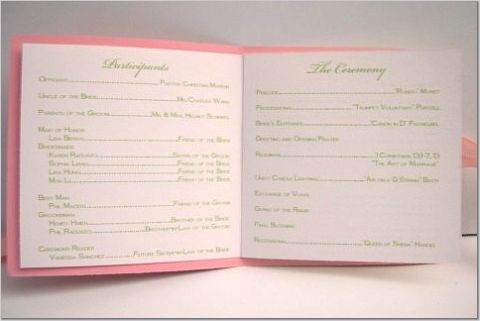 Participants
Officiant......Pastor Christian
Uncle of the Bride......Mr. Charles Wang
Parents of the Groom......Mr. & Mrs. Helmut
Maid of Honor
Lisa......Friend of the Bride
Bridesmaids
Karen......Sister of the Groom
Sophia......Friend of the Bride
Lisa......Friend of the Bride
Mon Li......Friend of the Bride
Best Man
Phil......Friend of the Groom
Groomsmen
Henry......Brother of the Bride
Phil......Brother-in-Law of the Groom
Ceremony Reader
Vanessa Sanchez......Future Sister-in-Law of the Bride
The Ceremony
Prelude......"Rondo" Mozart
Processional......"Trumpet Voluntary" Purcell
Bride's Entrance......"Canon in D" Pachelbel
Greeting and Opening Prayer
Readings......1 Corinthians 13:1-7, 13
"The Art of Marriage"
Unity Candle Lighting......"Air on a G String" Bach
Exchange of Vows
Giving of the Rings
Final Blessing
Recessional......"Queen of Sheba" Handel